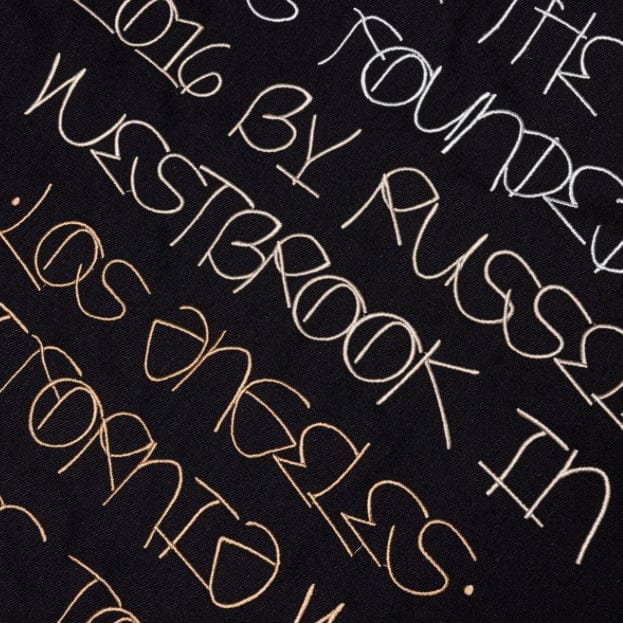 THE
FOUNDE
2016 BY RUSSE
WESTBROOK IN
LOS ANGELES.
FORNIA